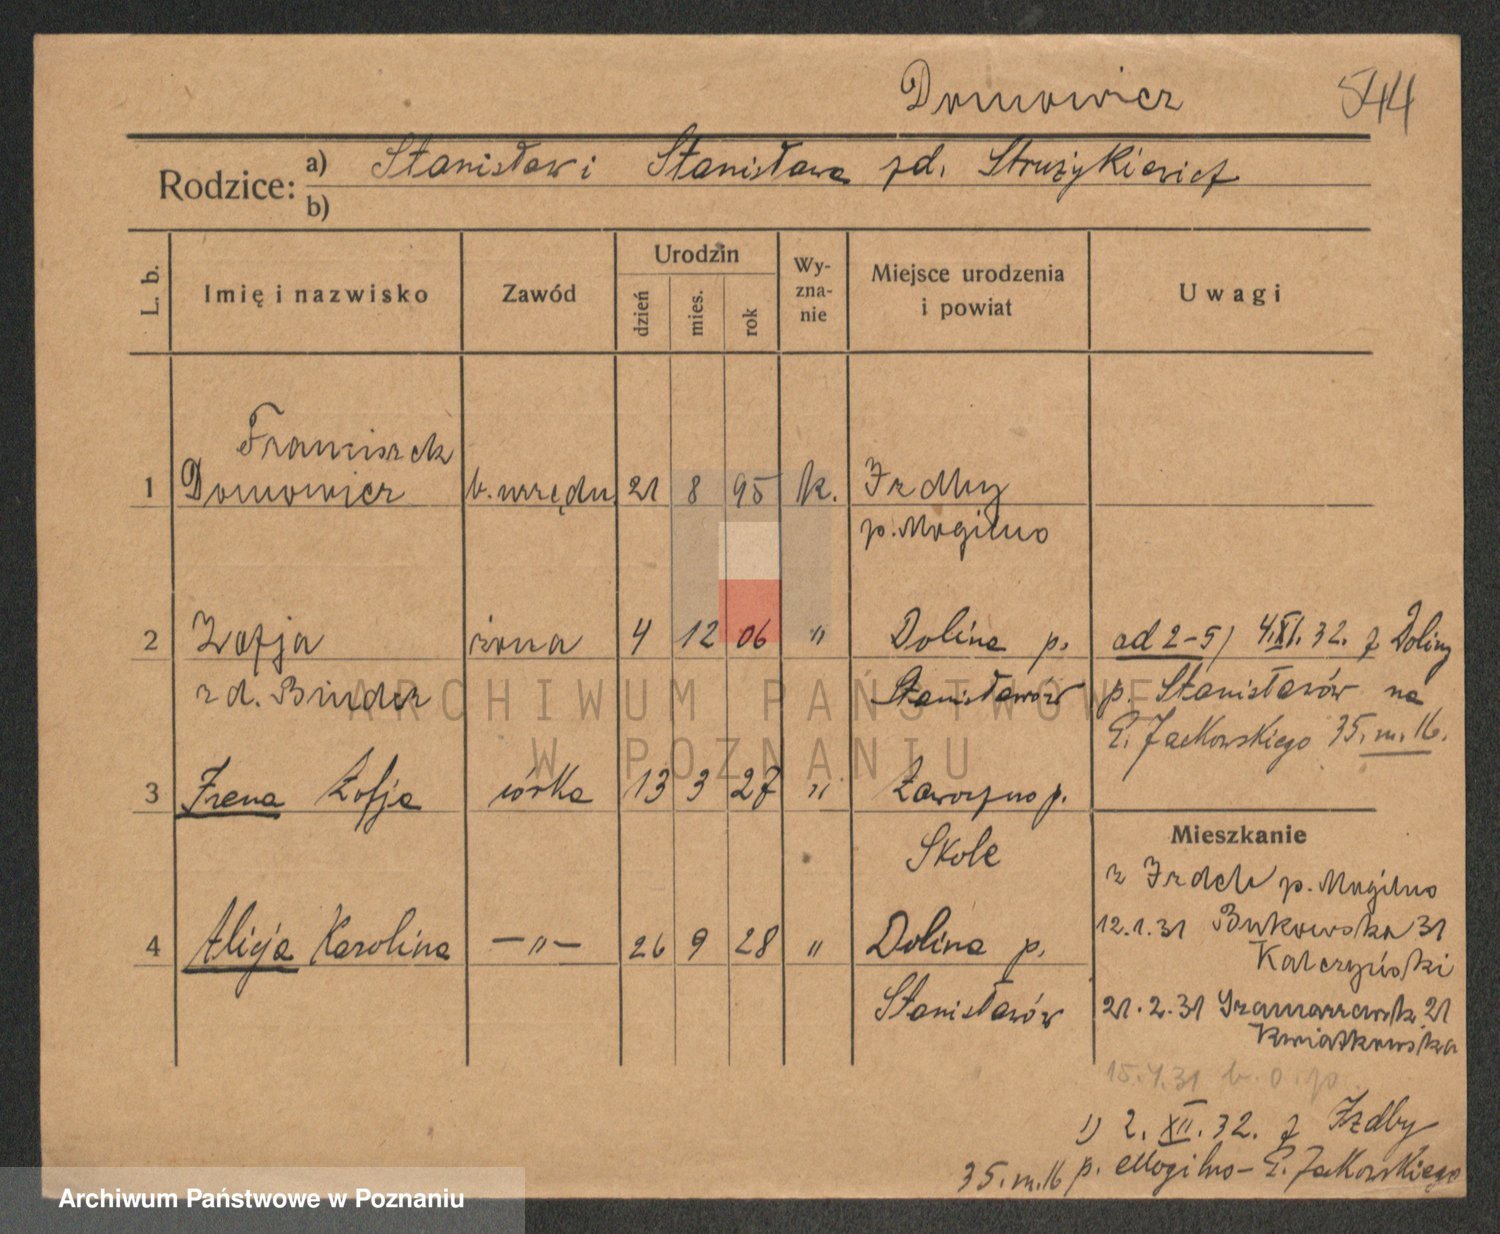 Domowicz 544
Rodzice: a) Stanisław i Stanisława zd. Strużykiewicz
b)
L. b.
Imię i nazwisko
Zawód
Urodzin
dzień
mies.
rok
Wy-
zna-
nie
Miejsce urodzenia
i powiat
Uwagi
Franciszek
1 Domowicz b. urzędn. 21 8 95 k. Izdby
p. Mogilno
2 Zofja żona 4 12 06 " Dolina p.
zd. Binder Stanisławów
ad 2-5) 4.XI.32. z Doliny
p. Stanisławów na
G. Jackowskiego 35. m. 16.
3 Irena Zofja córka 13 3 27 " Ławoczno p.
Skole
4 Alicja Karolina -"- 26 9 28 " Dolina p.
Stanisławów
Mieszkanie
z Izdeb p. Mogilno
12.1.31 Bukowska 31
Kalczyński
21.2.31 21
Kwiatkowska
15.4.31 b. o. p.
1) 2. XII. 32. z Izdby
p. Mogilno - G. Jackowskiego
35. m. 16
ARCHIWUM PAŃSTWOWE
W POZNANIU
Archiwum Państwowe w Poznaniu